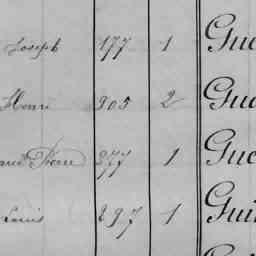 Joseph 177 1 Gue
Henri 305 2 Gue
Pierre 377 1 Gue
Louis 297 1 Gui